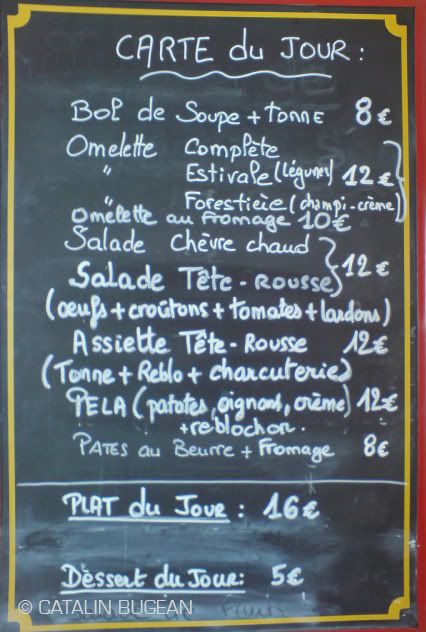 CARTE du JOUR :
Bol de Soupe + tonne 8€
Omelette Complète
" Estivale (légumes) 12€
" Forestière (champi-crème)
Omelette au Fromage 10€
Salade Chèvre chaud
Salade Tête-Rousse 12€
(oeufs + croûtons + tomates + lardons)
Assiette Tête-Rousse 12€
(Tonne + Reblo + charcuterie)
PELA (patates, oignons, crème) 12€
+ reblochon.
PATES au Beurre + Fromage 8€
PLAT du Jour : 16€
Dessert du Jour: 5€
© CATALIN BUGEAN
Fruits